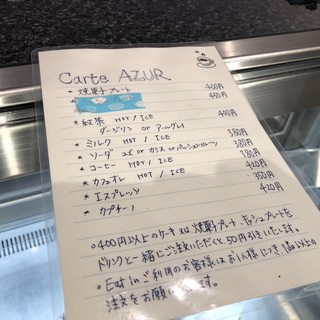 Carte AZUR
* 焼菓子プレート 400円
450円
* 紅茶 HOT / ICE 400円
ダージリン or アールグレイ
* ミルク HOT / ICE 380円
* ソーダ ユズ or カシス or パッションフルーツ 380円
* コーヒー HOT / ICE 380円
* カフェオレ HOT / ICE 420円
* エスプレッソ 350円
* カプチーノ 420円
• 400円以上のケーキ又は焼菓子プレート、をドリンクと一緒にご注文いただくと、50円引きいたします。
• Eat inご利用のお客様はお1人様につき1品以上の注文をお願いします。